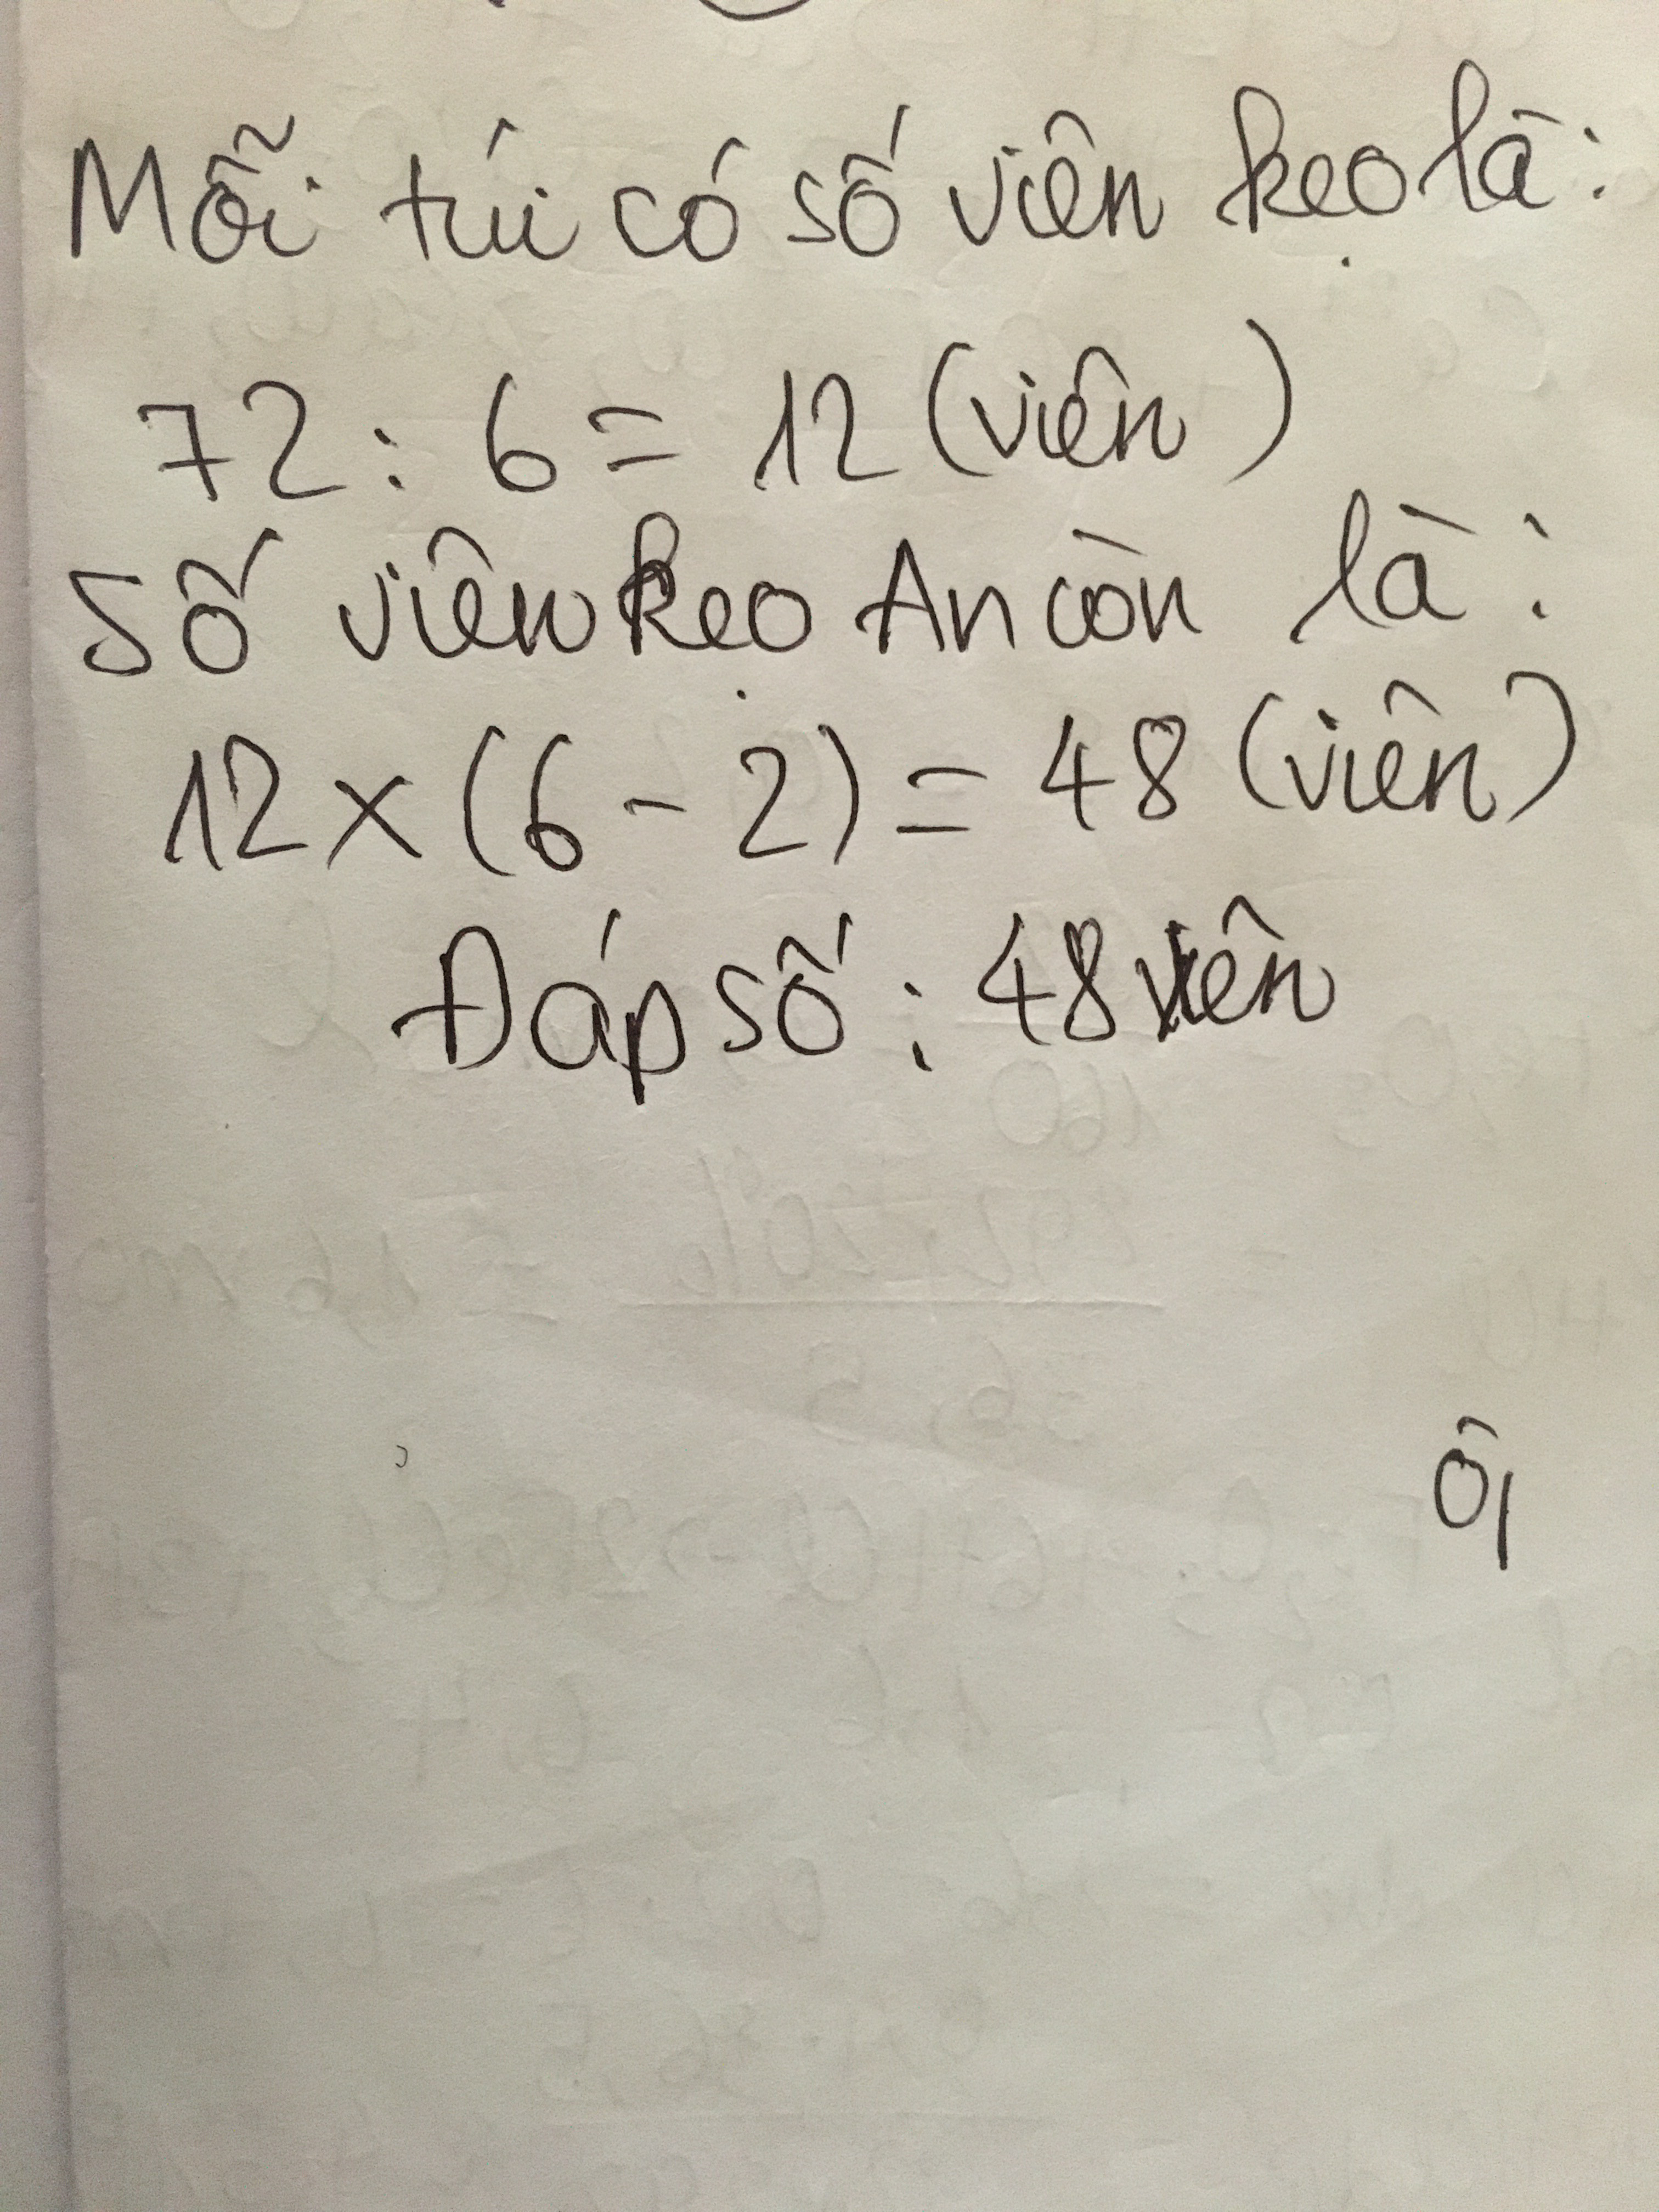 Mỗi túi có số viên kẹo là:
72 : 6 = 12 (viên)
Số viên kẹo An còn là:
12 x (6 - 2) = 48 (viên)
Đáp số: 48 viên